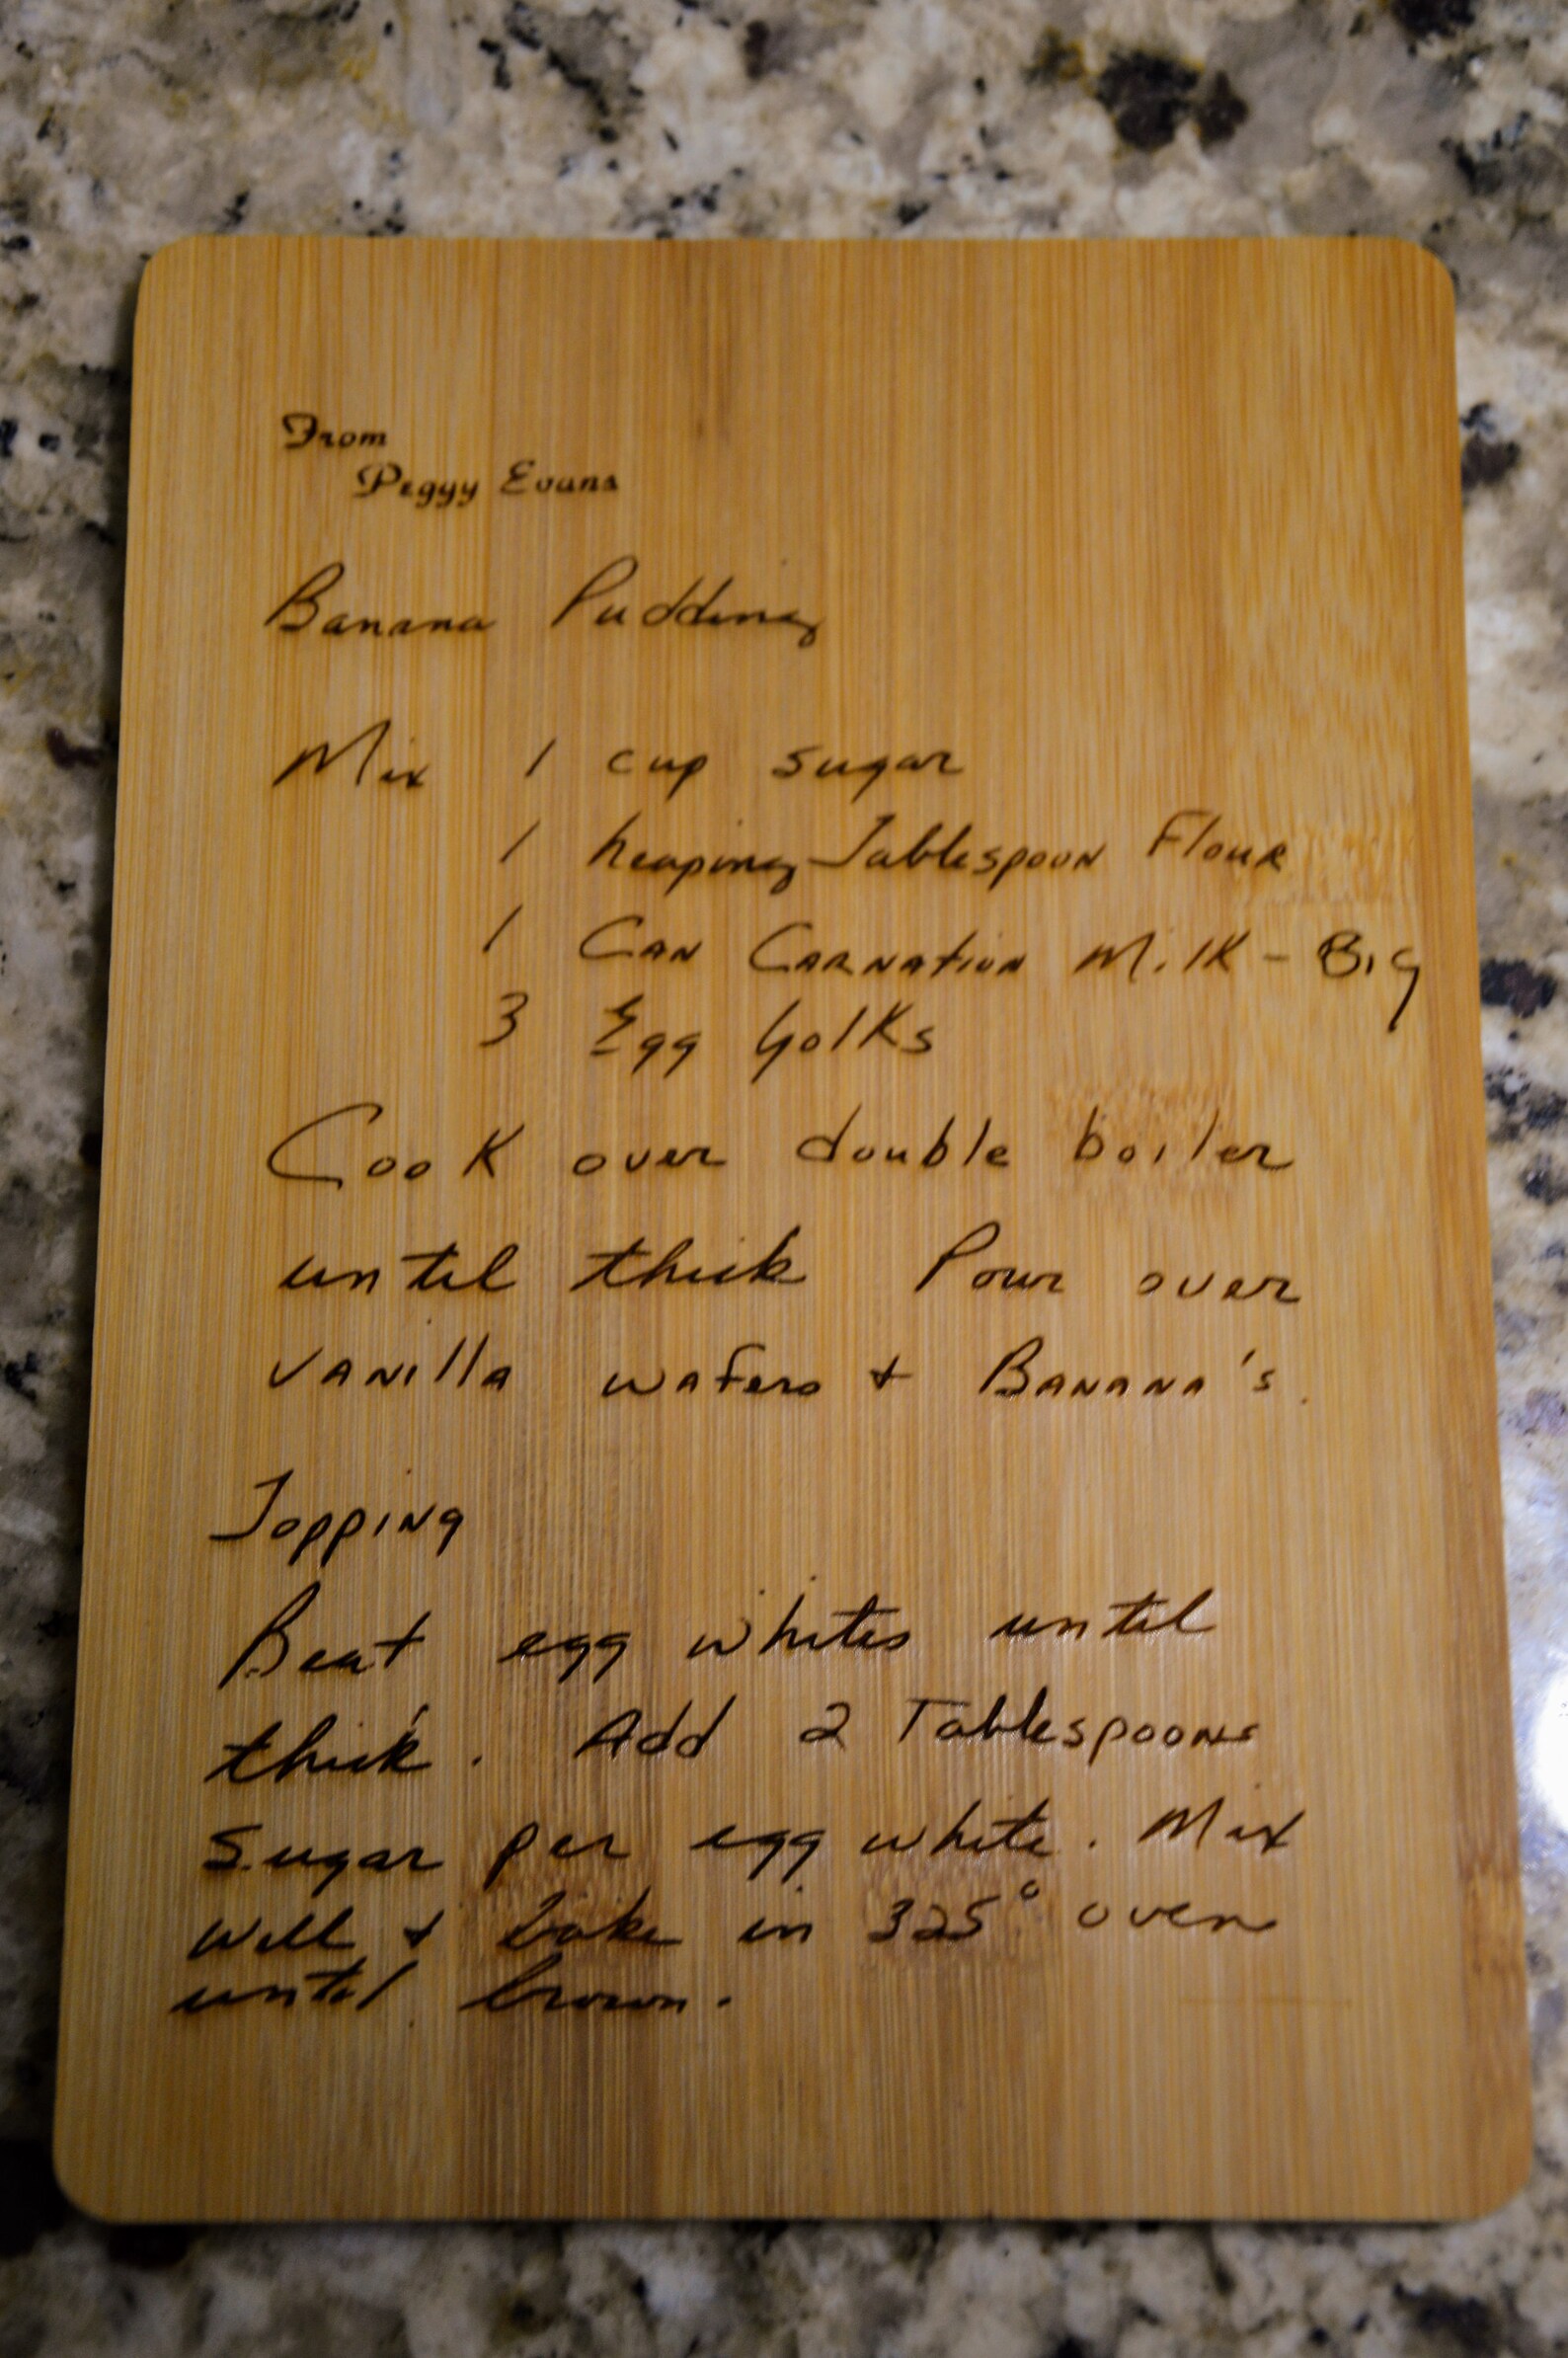 From
Peggy Evans
Banana Pudding
Mix 1 cup sugar
1 heaping Tablespoon Flour
1 Can Carnation Milk - Big
3 Egg Yolks
Cook over double boiler
until thick Pour over
vanilla wafers + Banana's.
Topping
Beat egg whites until
thick. Add 2 Tablespoons
Sugar per egg white. Mix
well + bake in 325° oven
until brown.